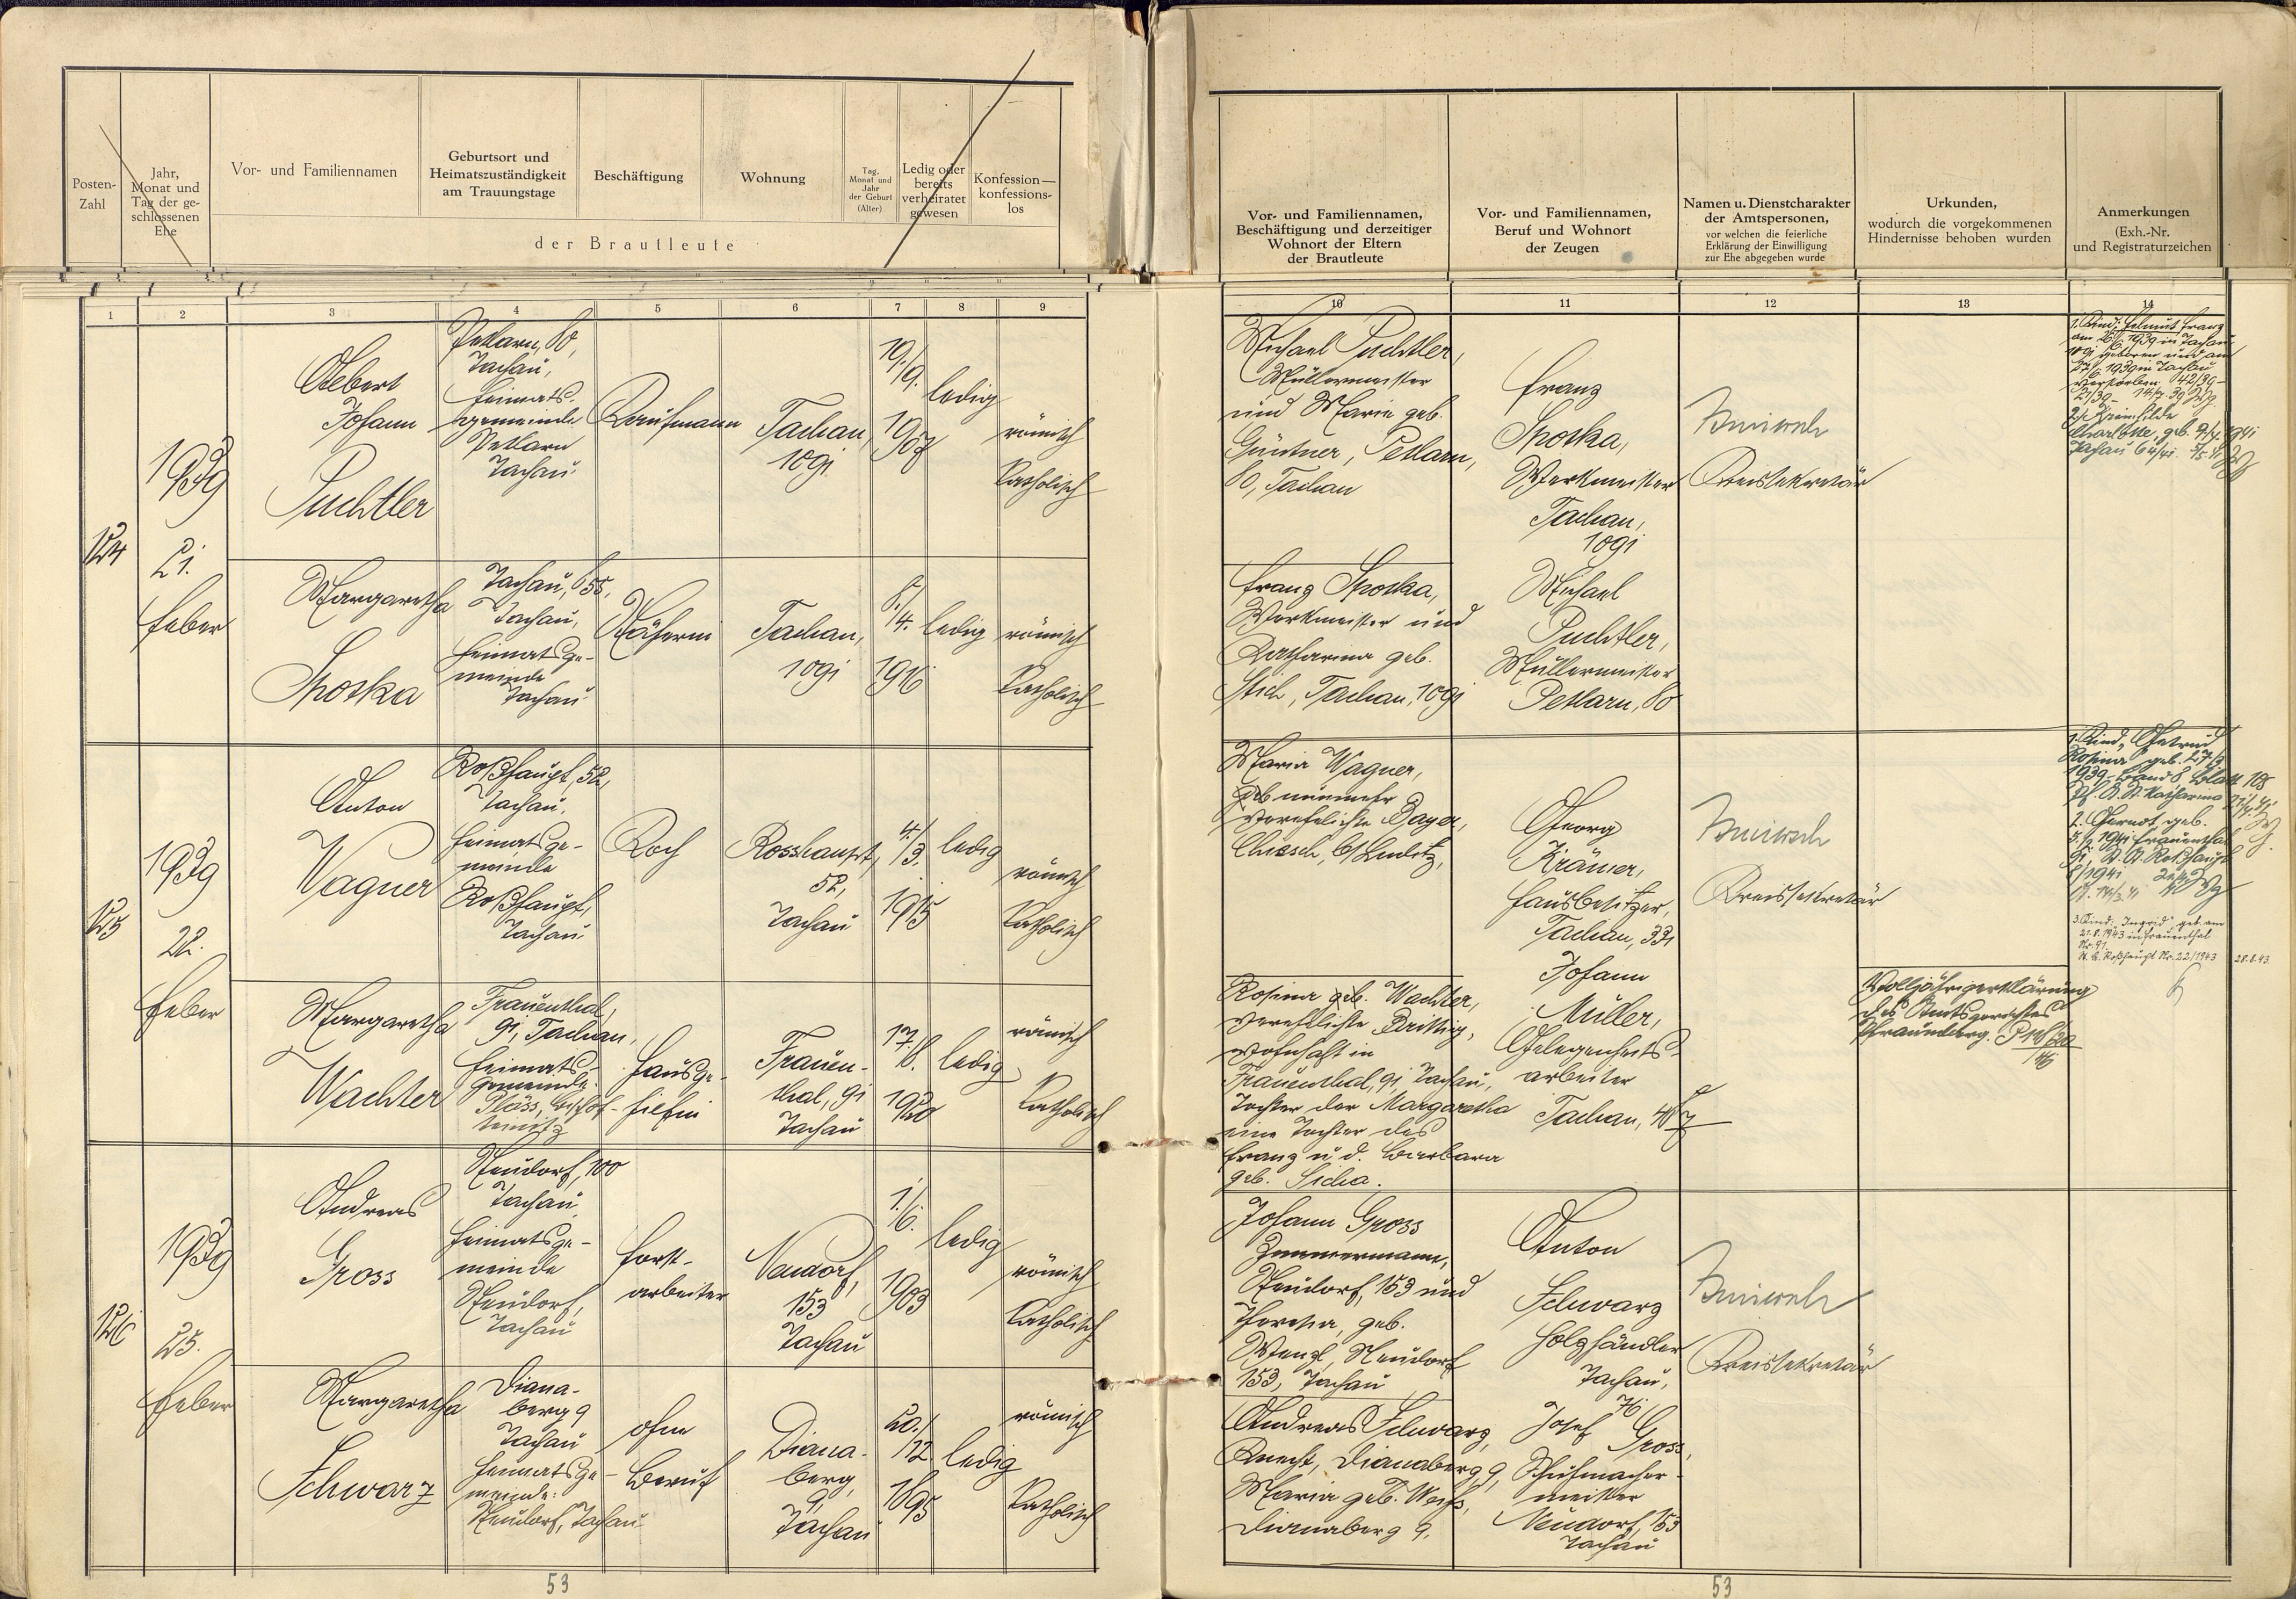 Posten-
Zahl
Jahr,
Monat und
Tag der ge-
schlossenen
Ehe
Vor- und Familiennamen
Geburtsort und
Heimatszuständigkeit
am Trauungstage
Beschäftigung
Wohnung
Tag,
Monat und
Jahr
der Geburt
(Alter)
Ledig oder
bereits
verheiratet
gewesen
Konfession—
konfessions-
los
der Brautleute
Vor- und Familiennamen,
Beschäftigung und derzeitiger
Wohnort der Eltern
der Brautleute
Vor- und Familiennamen,
Beruf und Wohnort
der Zeugen
Namen u. Dienstcharakter
der Amtspersonen,
vor welchen die feierliche
Erklärung der Einwilligung
zur Ehe abgegeben wurde
Urkunden,
wodurch die vorgekommenen
Hindernisse behoben wurden
Anmerkungen
(Exh.-Nr.
und Registraturzeichen
1 2 3 4 5 6 7 8 9
10 11 12 13 14
1939
21.
Feber
Johann
Puchtler
Petlarn, 80,
Tachau,
Heimats-
gemeinde
Petlarn
Tachau
Kaufmann
Tachau,
1091
19./
9.
1907
ledig
römisch
katholisch
Michael Puchtler,
Müllermeister
und Marie geb.
Güntner, Petlarn,
80, Tachau
Franz
Sposka,
Werkmeister
Tachau,
1091
Kreissekretär
1. Kind: Helmut Franz
1939 in Tachau
1091 geboren und am
1939 in Tachau
verstorben. 42/39
Charlotte, geb. 9/4. 1941
Margaretha
Sposka
Tachau, 655,
Tachau,
Heimatsge-
meinde
Tachau
Näherin
Tachau,
1091
8./
4.
1916
ledig
römisch
katholisch
Franz Sposka,
Werkmeister und
Katharina geb.
Stich, Tachau, 1091
Michael
Puchtler,
Müllermeister
Petlarn, 80
1939
22.
Feber
Anton
Wagner
Roßhaupt, 52,
Tachau,
Heimatsge-
meinde
Roßhaupt,
Tachau
Koch
Rosshaupt,
52,
Tachau
4./
3.
1915
ledig
römisch
katholisch
Maria Wagner,
nunmehr
verehelichte Bayer,
Georg
Krämer,
Hausbesitzer,
Tachau, 331
Kreissekretär
1. Kind, Gertrud
Rosina geb. 27/9
1939 Band 8 Blatt 108
2. Gernot, geb.
1941 Frauenthal
91, St. A. Roßhaupt
8/1941
3. Kind: "Ingrid" geb. am
21.8.1943 in Frauenthal
Nr. 91.
St. A. Roßhaupt Nr. 22/1943 28.8.43
Margaretha
Wachter
Frauenthal,
91, Tachau,
Heimats-
gemeinde:
Pläss, Bischof-
teinitz
Hausge-
hilfin
Frauen-
thal, 91
Tachau
17./
8.
1920
ledig
römisch
katholisch
Rosina geb. Wachter,
verehelichte Brittig,
wohnhaft in
Frauenthal, 91, Tachau,
Tochter der Margaretha
eine Tochter des
Franz u. d. Barbara
geb. Sicha.
Johann
Müller,
Gelegenheits-
arbeiter
Tachau,
Volljährigerklärung
des Amtsgerichtes
Pfraumberg.
1939
25.
Feber
Andreas
Gross
Neudorf, 100
Tachau
Heimatsge-
meinde
Neudorf,
Tachau
Forst-
arbeiter
Neudorf,
153
Tachau
1./
6.
1903
ledig
römisch
katholisch
Johann Gross
Zimmermann,
Neudorf, 153 und
Theresia, geb.
Wenzl, Neudorf
153, Tachau
Anton
Schwarz
Holzhändler
Tachau,
Kreissekretär
Margaretha
Schwarz
Diana-
berg 9
Tachau
Heimatsge-
meinde:
Neudorf, Tachau
ohne
Beruf
Diana-
berg,
9,
Tachau
20./
12
1895
ledig
römisch
katholisch
Andreas Schwarz,
Knecht, Dianaberg 9,
Maria geb. Weiß,
Dianaberg 9.
Josef Gross,
Schuhmacher-
meister
Neudorf, 153
Tachau
53
53